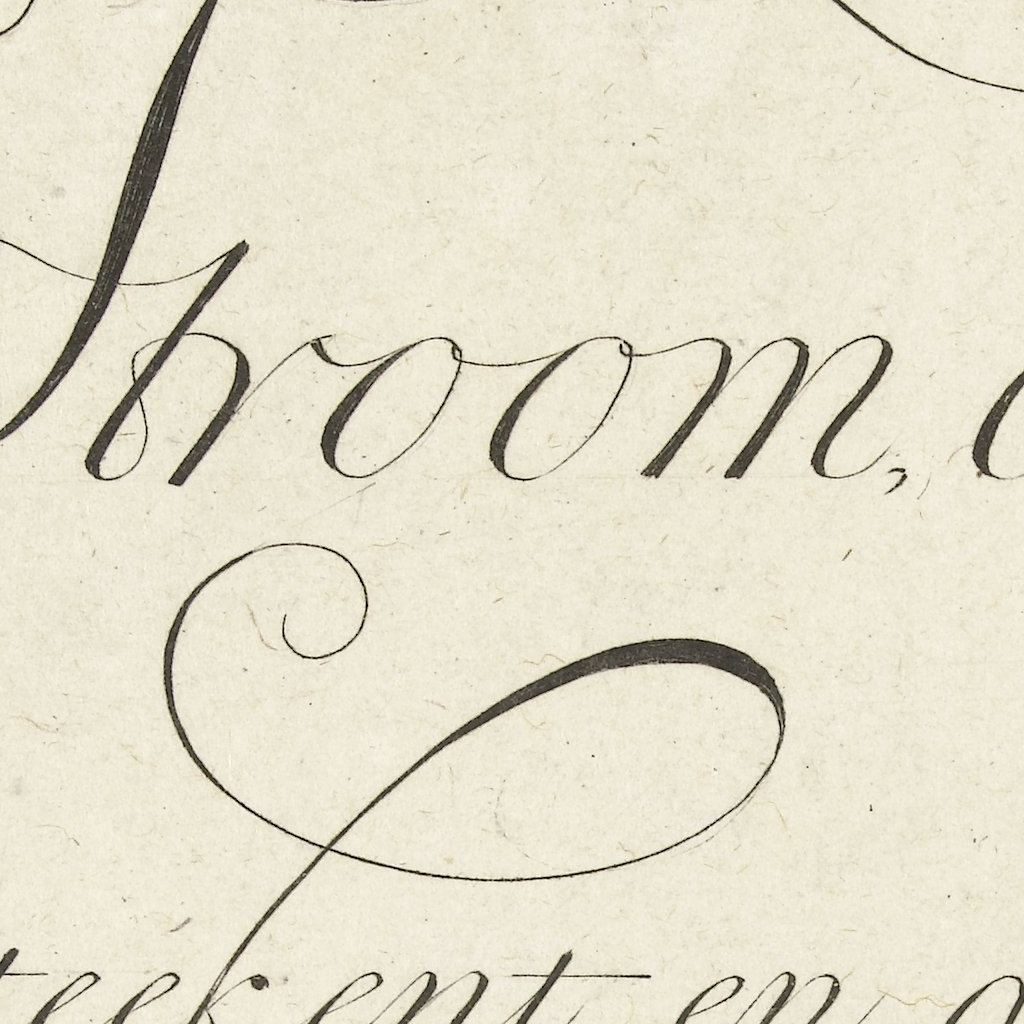 Stroom,
teekent en